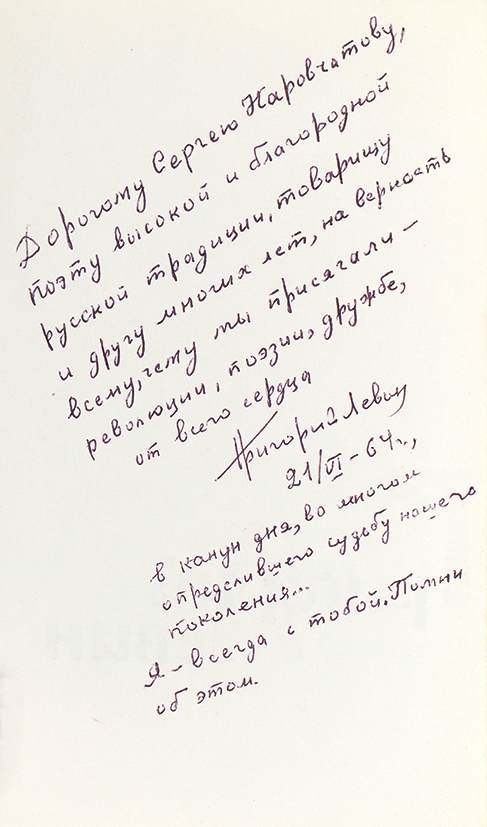 Дорогому Сергею Наровчатову,
поэту высокой и благородной
русской традиции, товарищу
и другу многих лет, на верность
всему, чему мы присягали –
революции, поэзии, дружбе,
от всего сердца
Григорий Левин
21/VI – 64 г.,
в канун дня, во многом
определившего судьбу нашего
поколения...
Я – всегда с тобой. Помни
об этом.